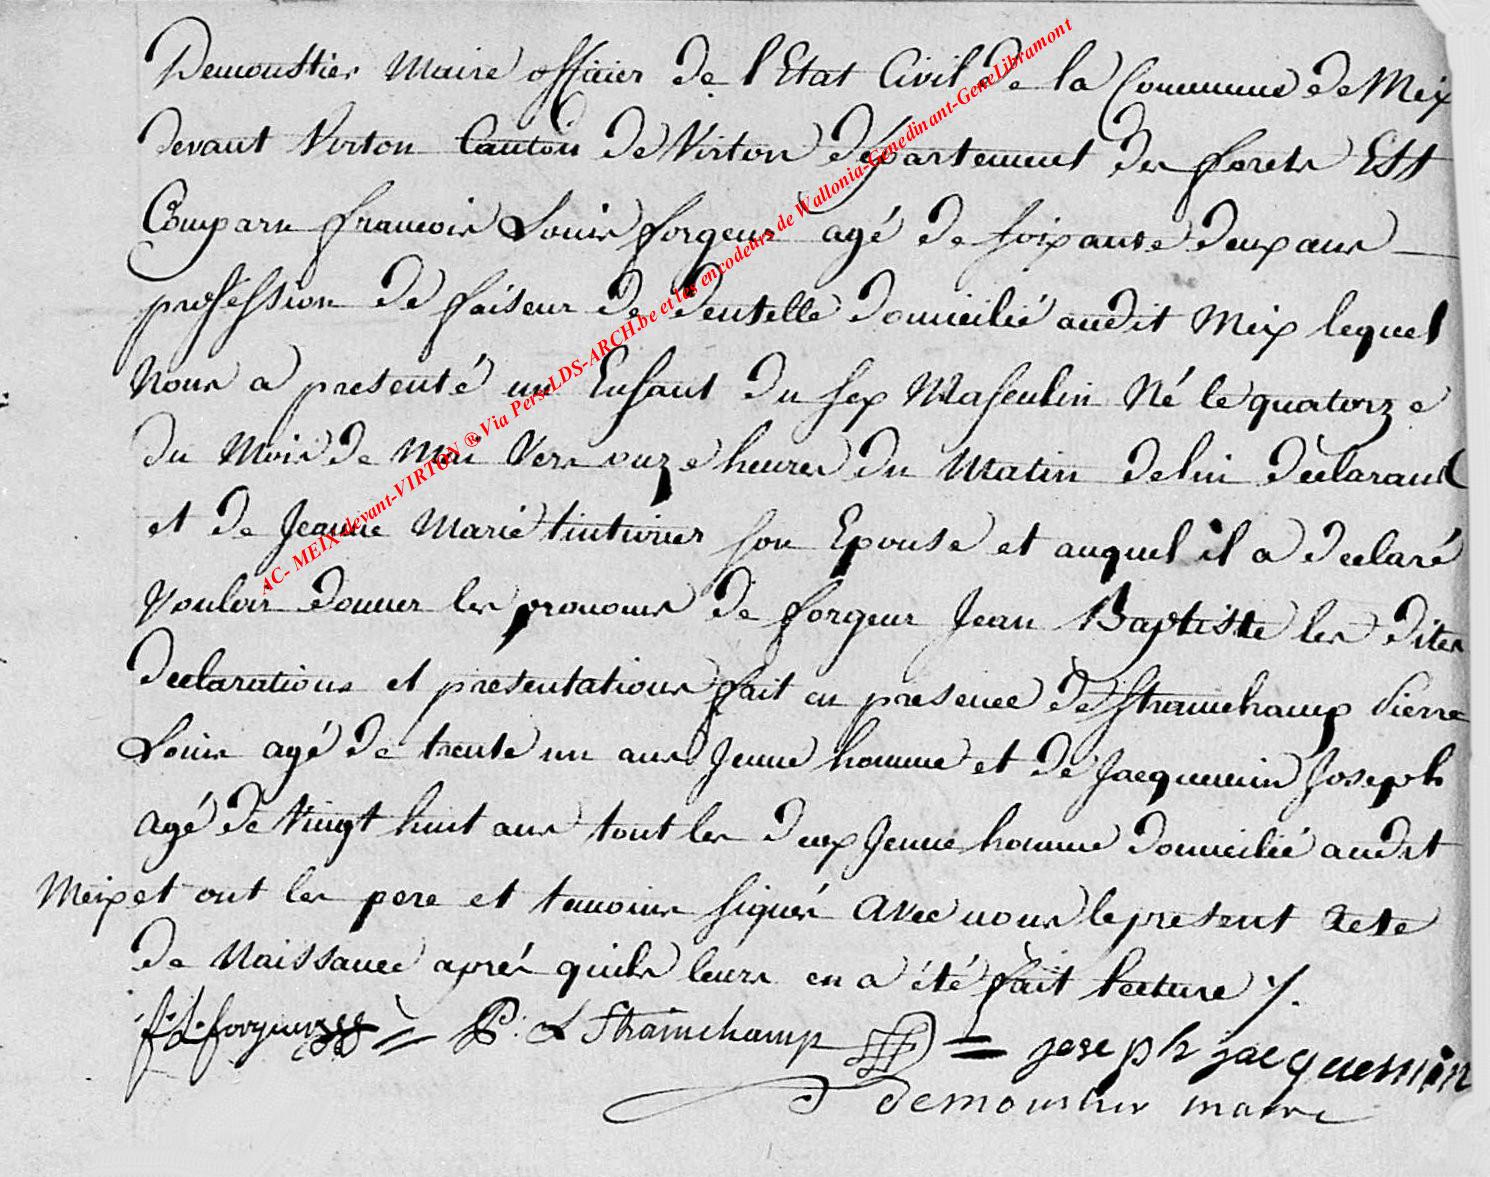 Demoustier Maire officier de l'Etat Civil de la Commune de Meix
devant Virton Canton de Virton departement des forets Est
Comparu francois Louis forgeur agé de soixante deux ans
profession de faiseur de dentelle domicilié audit Meix lequel
Nous a presenté un Enfant du sex Masculin Né le quatorze
du Mois de Mai Vers onze heures du Matin de lui declarant
et de Jeanne Marie tintinier son Epouse et auquel il a declaré
Vouloir donner les pronoms de forgeur Jean Baptiste les dites
declarations et presentations fait en presence de Strainchamp Pierre
Louis agé de trente un ans Jeune homme et de Jacquemin Joseph
agé de Vingt huit ans tout les deux Jeune homme domicilié audit
Meix et ont les pere et temoins signés avec nous le present acte
de Naissance aprés quils leurs en a été fait lecture /.
f. L. forgeur = P. L Strainchamp = joseph jacquemin
demoustier maire
AC- MEIX-devant-VIRTON ® Via Pers-LDS-ARCH.be et les encodeurs de Wallonia-Genedinant-GeneLibramont